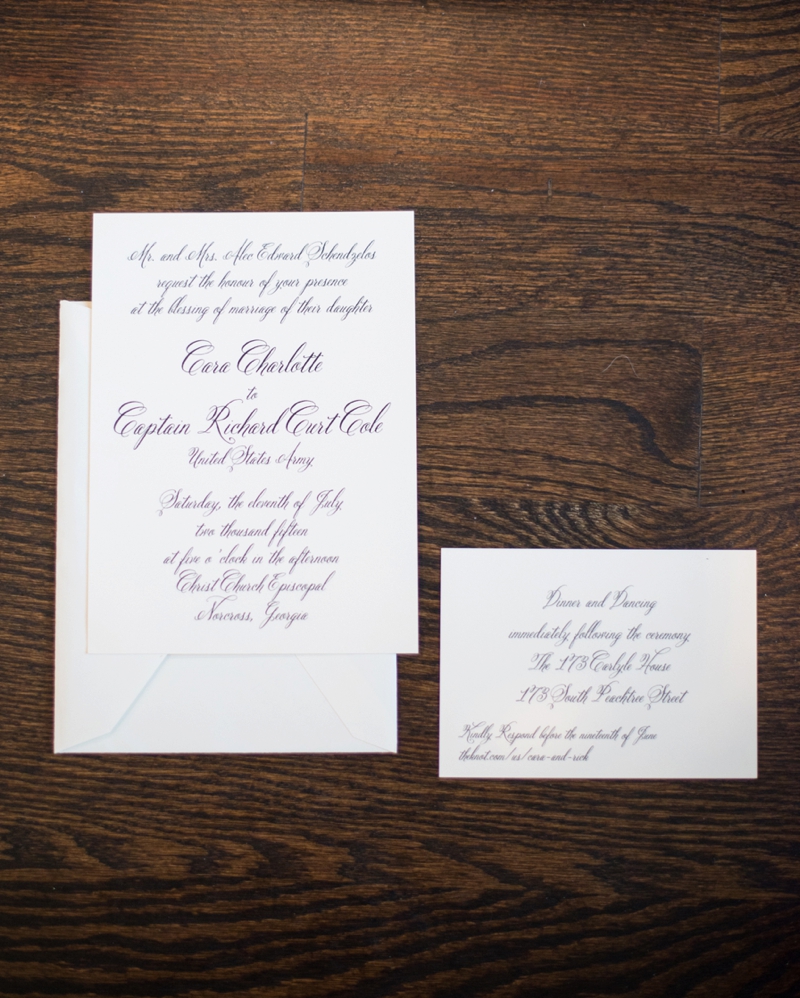 Mr. and Mrs. Alec Edward Schendzelos
request the honour of your presence
at the blessing of marriage of their daughter
Cara Charlotte
to
Captain Richard Curt Cole
United States Army
Saturday, the eleventh of July
two thousand fifteen
at five o'clock in the afternoon
Christ Church Episcopal
Norcross, Georgia
Dinner and Dancing
immediately following the ceremony
The 173 Carlyle House
173 South Peachtree Street
Kindly Respond before the nineteenth of June
theknot.com/us/cara-and-rick